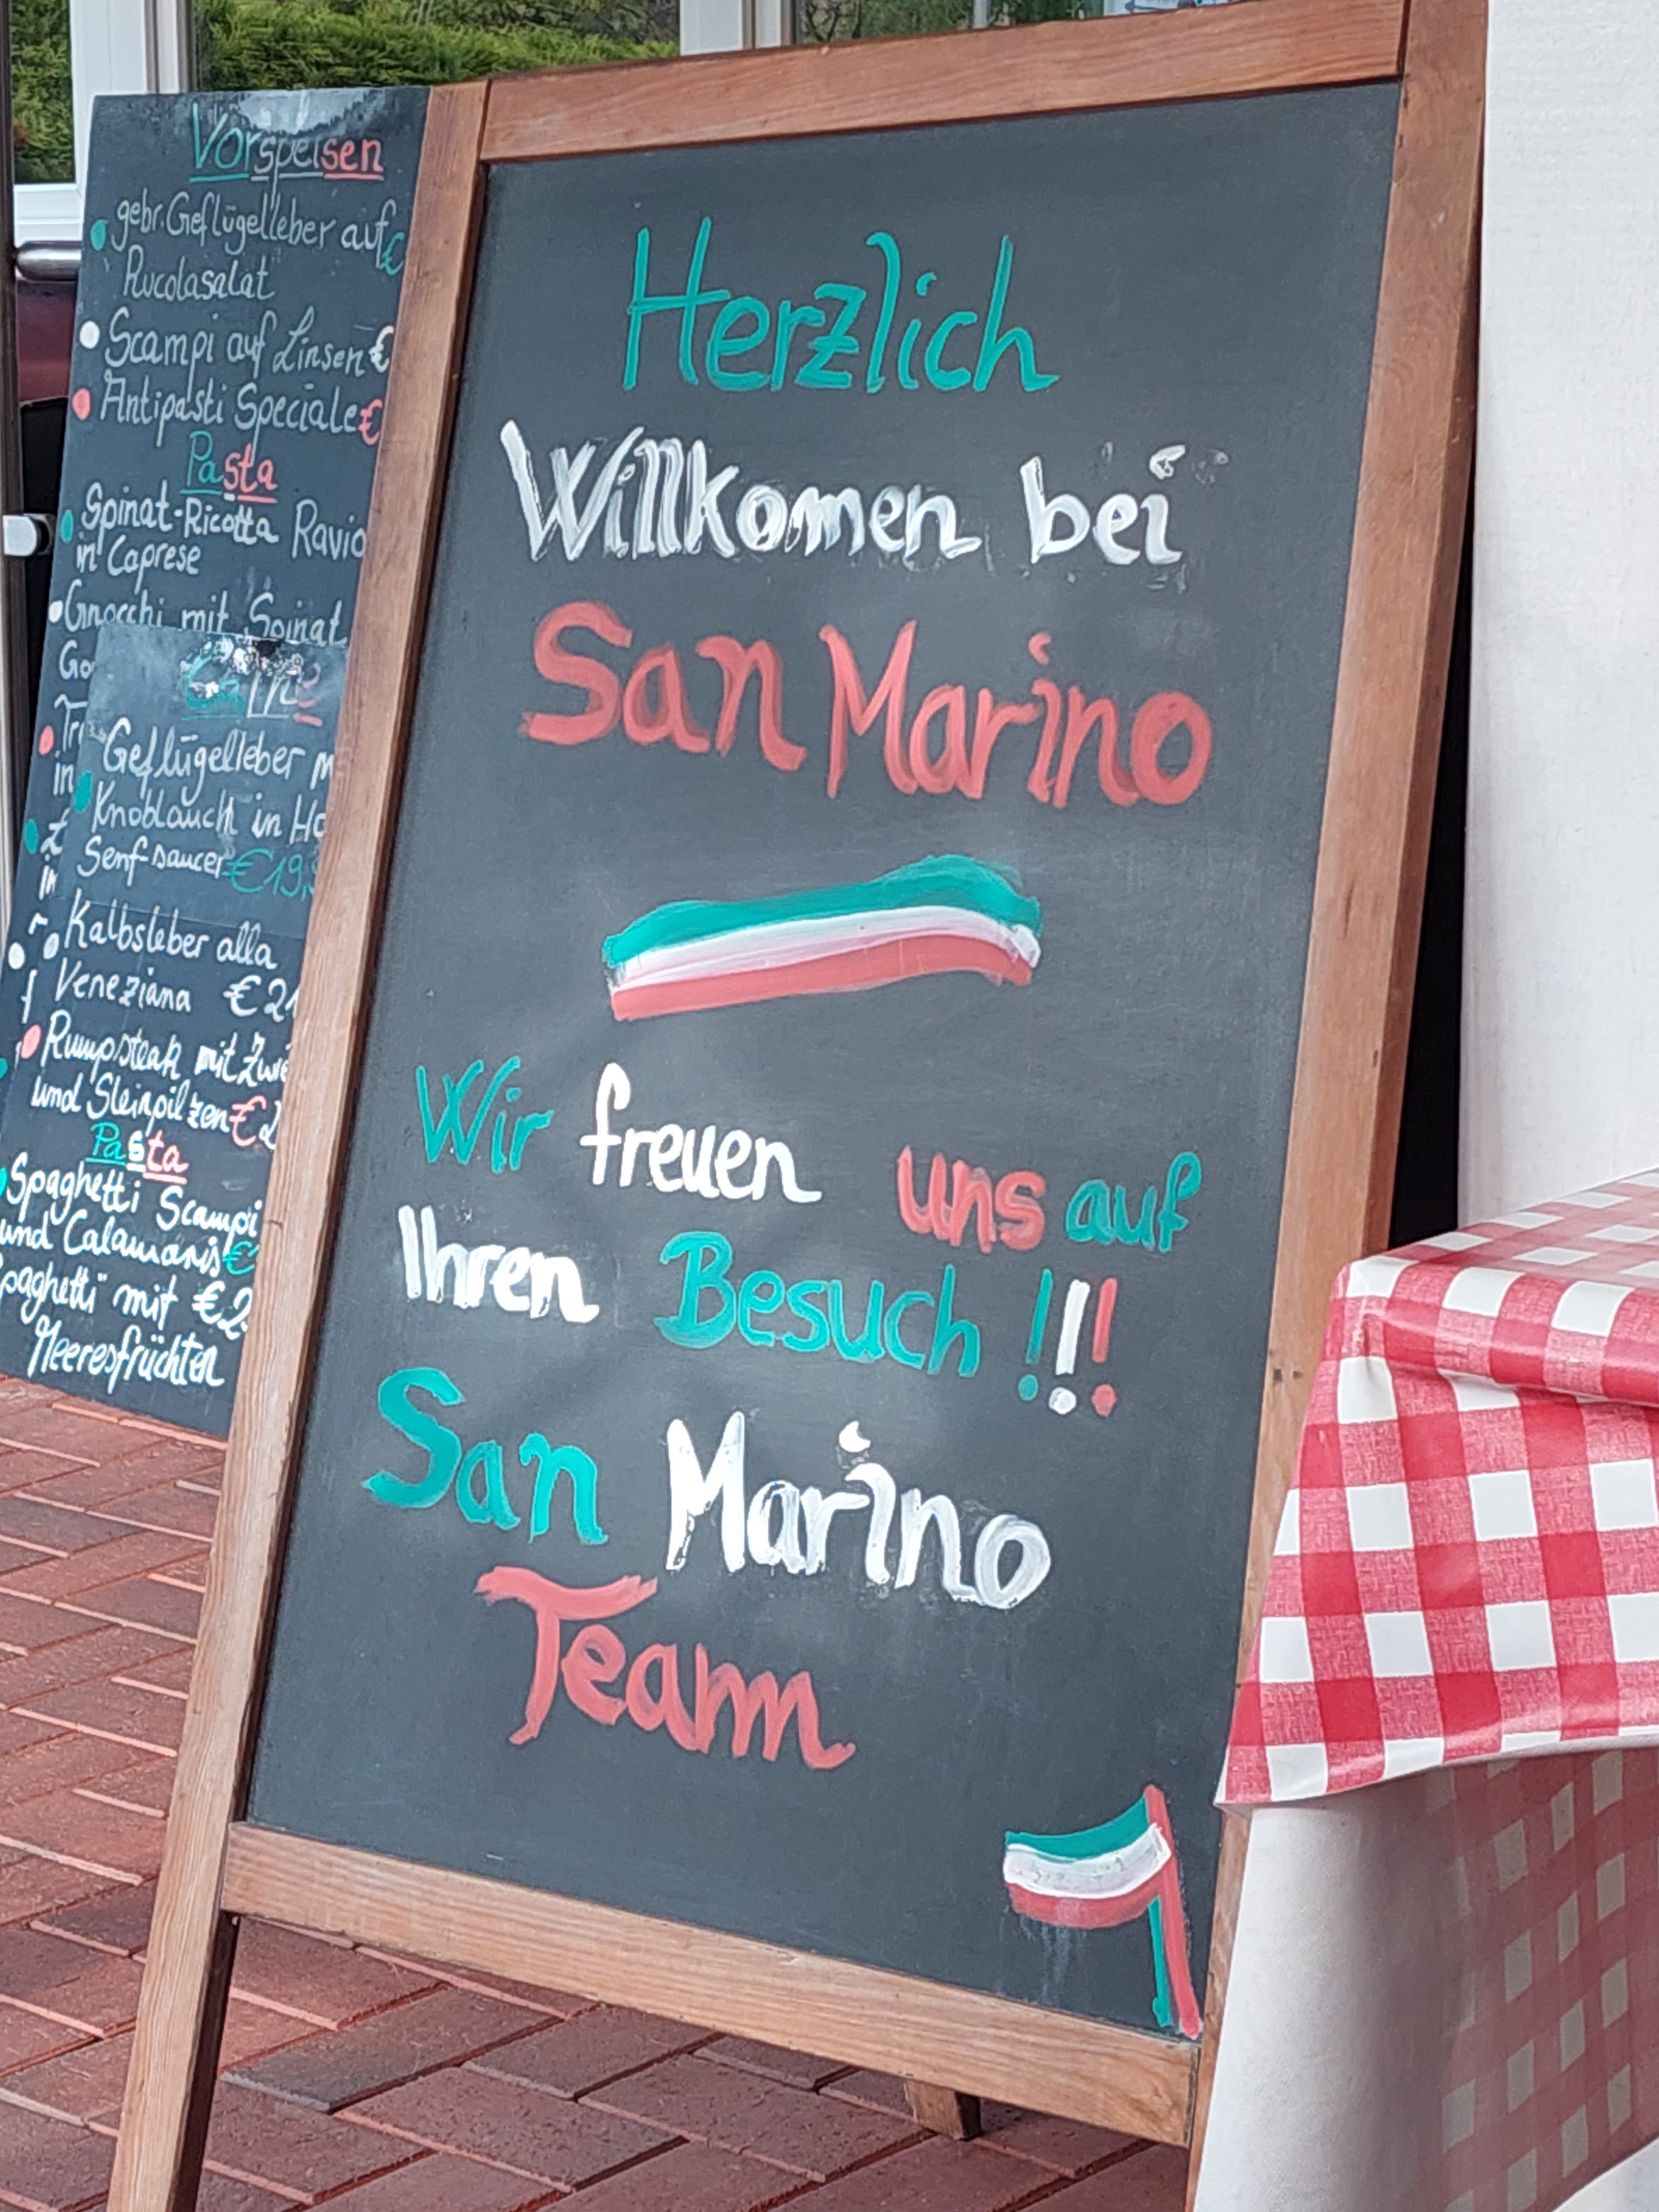 Vorspeisen
gebr. Geflügelleber auf €
Rucolasalat
Scampi auf Linsen €
Antipasti Speciale €
Pasta
Spinat-Ricotta
in Caprese
Gnocchi mit Spinat
Geflügelleber
Knoblauch in
Senf-saucer €19,
Kalbsleber alla
Veneziana €21
Rumpsteak mit
und Steinpilzen €2
Pasta
Spaghetti Scampi
und Calamaris €
paghetti mit €2
Meeresfrüchten
Herzlich
Willkomen bei
San Marino
Wir freuen uns auf
Ihren Besuch !!!
San Marino
Team